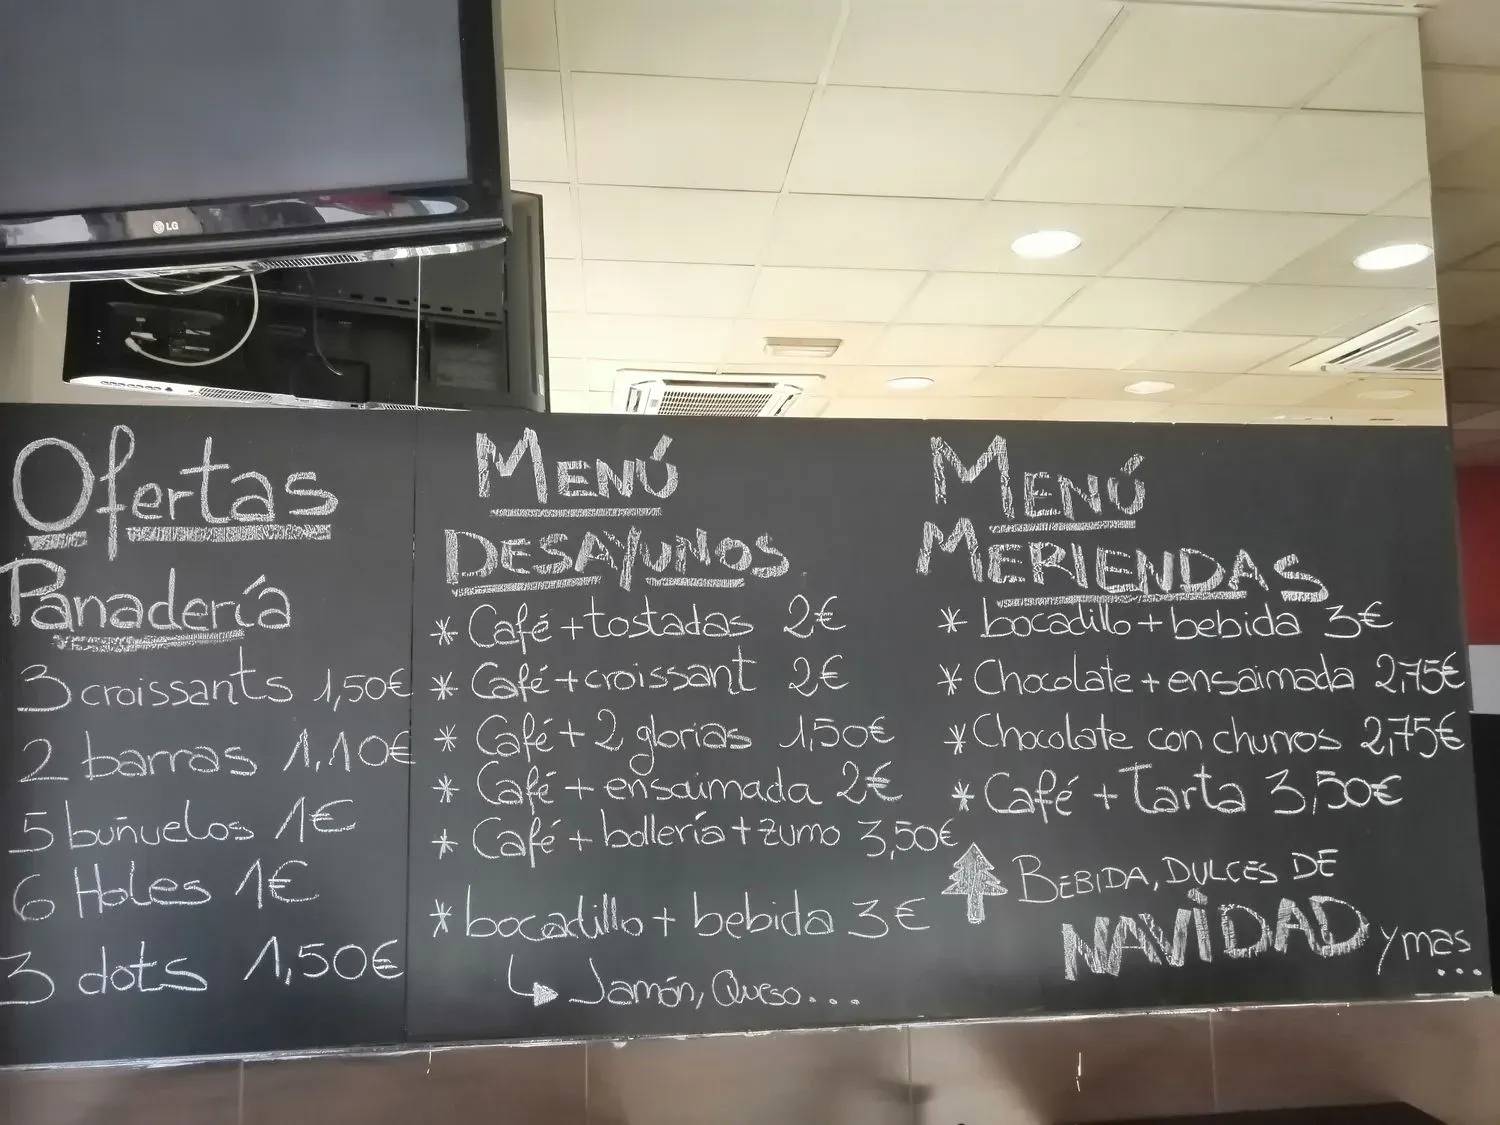 LG
Ofertas
Panadería
3 croissants 1,50€
2 barras 1,10€
5 buñuelos 1€
6 Holes 1€
3 dots 1,50€
MENÚ
DESAYUNOS
* Café + tostadas 2€
* Café + croissant 2€
* Café + 2 glorias 1,50€
* Café + ensaimada 2€
* Café + bollería + zumo 3,50€
* bocadillo + bebida 3€
Jamón, Queso...
MENÚ
MERIENDAS
* bocadillo + bebida 3€
* Chocolate + ensaimada 2,75€
* Chocolate con churros 2,75€
* Café + Tarta 3,50€
BEBIDA, DULCES DE
NAVIDAD y mas
...